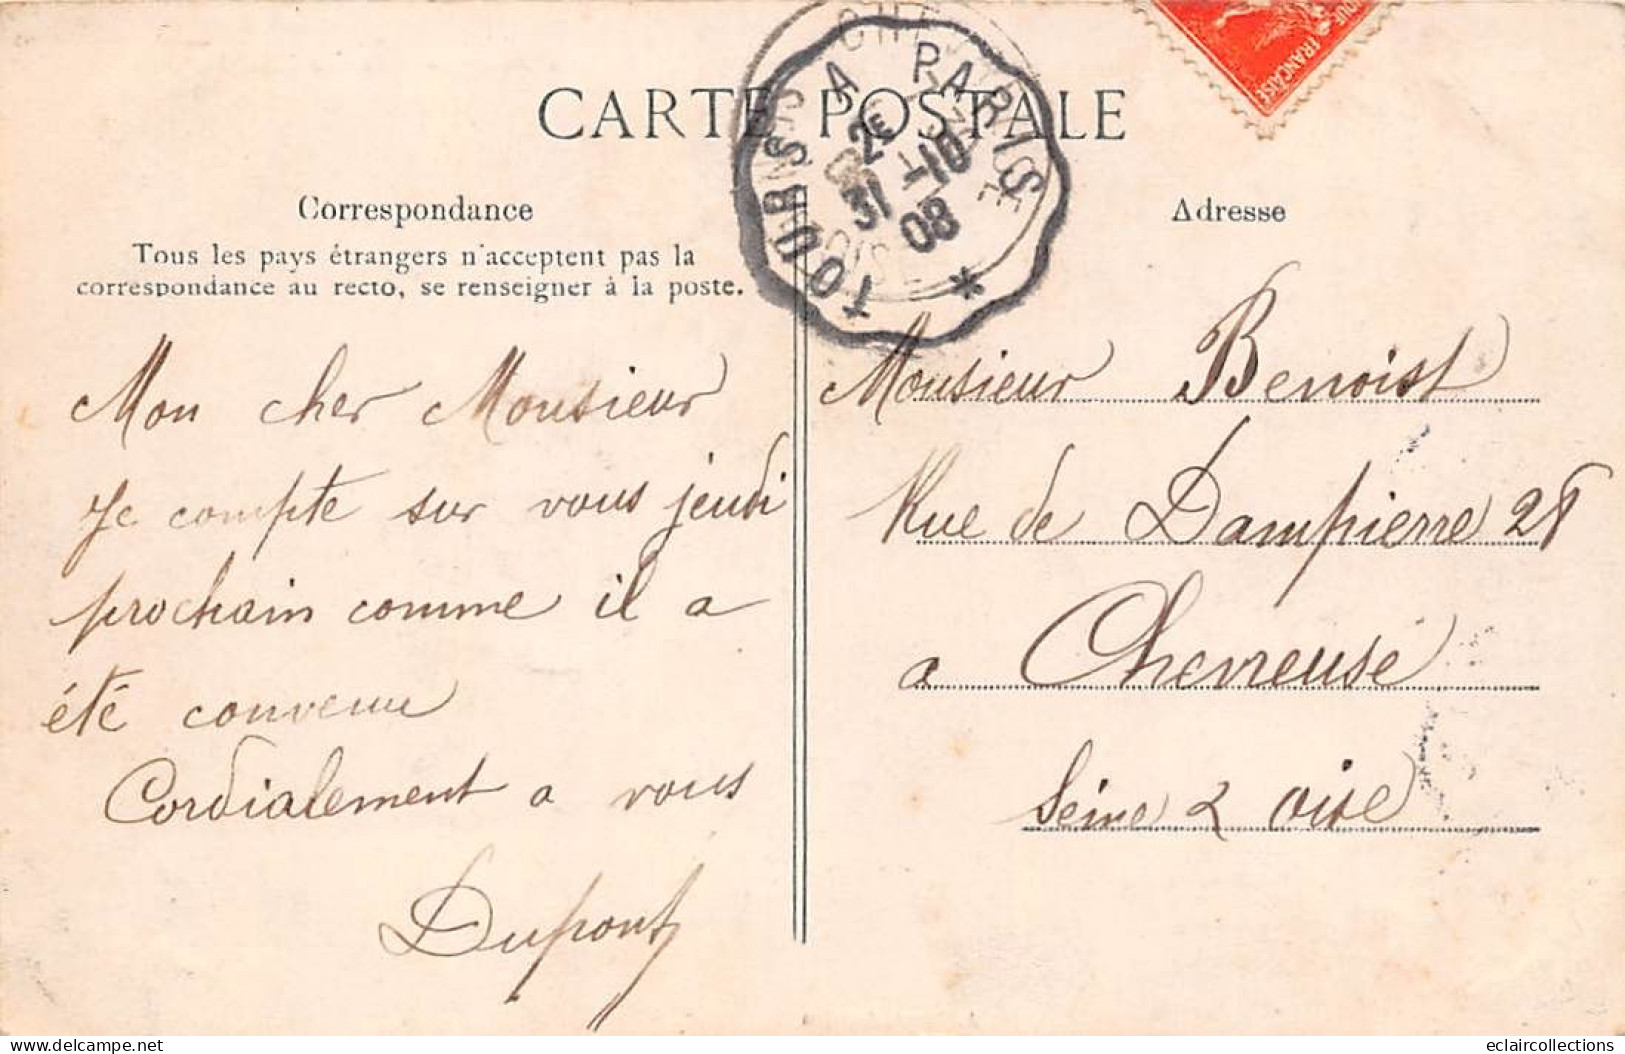 CARTE POSTALE
TOURS A PARIS
2E
31 -10
08
QUE FRANÇAISE
Correspondance
Tous les pays étrangers n'acceptent pas la
correspondance au recto, se renseigner à la poste.
Mon cher Monsieur
Je compte sur vous jeudi
prochain comme il a
été convenu
Cordialement a vous
Dupont
Adresse
Monsieur Benoist
Rue de Dampierre 28
a Chevreuse
Seine & Oise
eclaircollections